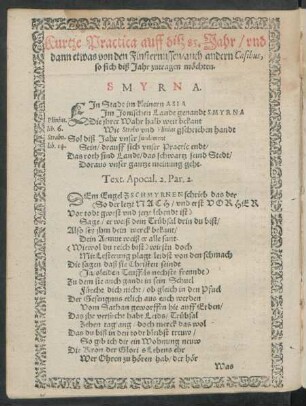 Kurtze Practica auff diß 81. Jahr / vnd
dann etwas von den Finsternussen auch andern Casibus,
so sich diß Jahr zutragen möchten.
SMYRNA.
EIn Stadt im kleinern ASIA
Im Jonischen Lande genandt SMYRNA
Die jhrer Wahr halb weit bekant
Wie Strabo vnd Plinius geschrieben handt
Sol diß Jahr vnser fundament
Sein / drauff sich vnser Practic endt /
Das roth sind Landt / das schwartz sind Stedt /
Doraus vnser gantze meinung geht.
Plinius.
lib. 6.
Strabo.
lib. 14.
Text. Apocal. 2. Par. 2.
DEm Engel ZV SCHMYRNEN schrieb das der
So der letzt NACH / vnd erst VORHER
Vor todt gweßt vnd jetzt lebendt ist:
Sage / er weiß dein Trübsal drin du bist /
Also sey jhm dein werck bekant /
Dein Armut weiß er alle sant.
(Wiewol du reich bist) wie jtzt doch
Mit Lesterung plagt leidst von den schmach
Die sagen daß sie Christen seindt
Ja / des Teuffls nechste freunde)
Zu dem sie auch gandt in sein Schuel
Förcht dich nicht / ob gleich in den Pfuel
Der Gefengnus etlich aus euch werden
Vom Sathan geworffen hie auff Erden /
Das jhr versucht habt Leibs / Trübsal
Zehen tag lang / doch merck das wol
Das du bist in den todt bleibst trew
So gib ich dir ein Wohnung new
Die Kron der Glori s Lebens ehr
Wer Ohren zu hören hab / der hör
Was